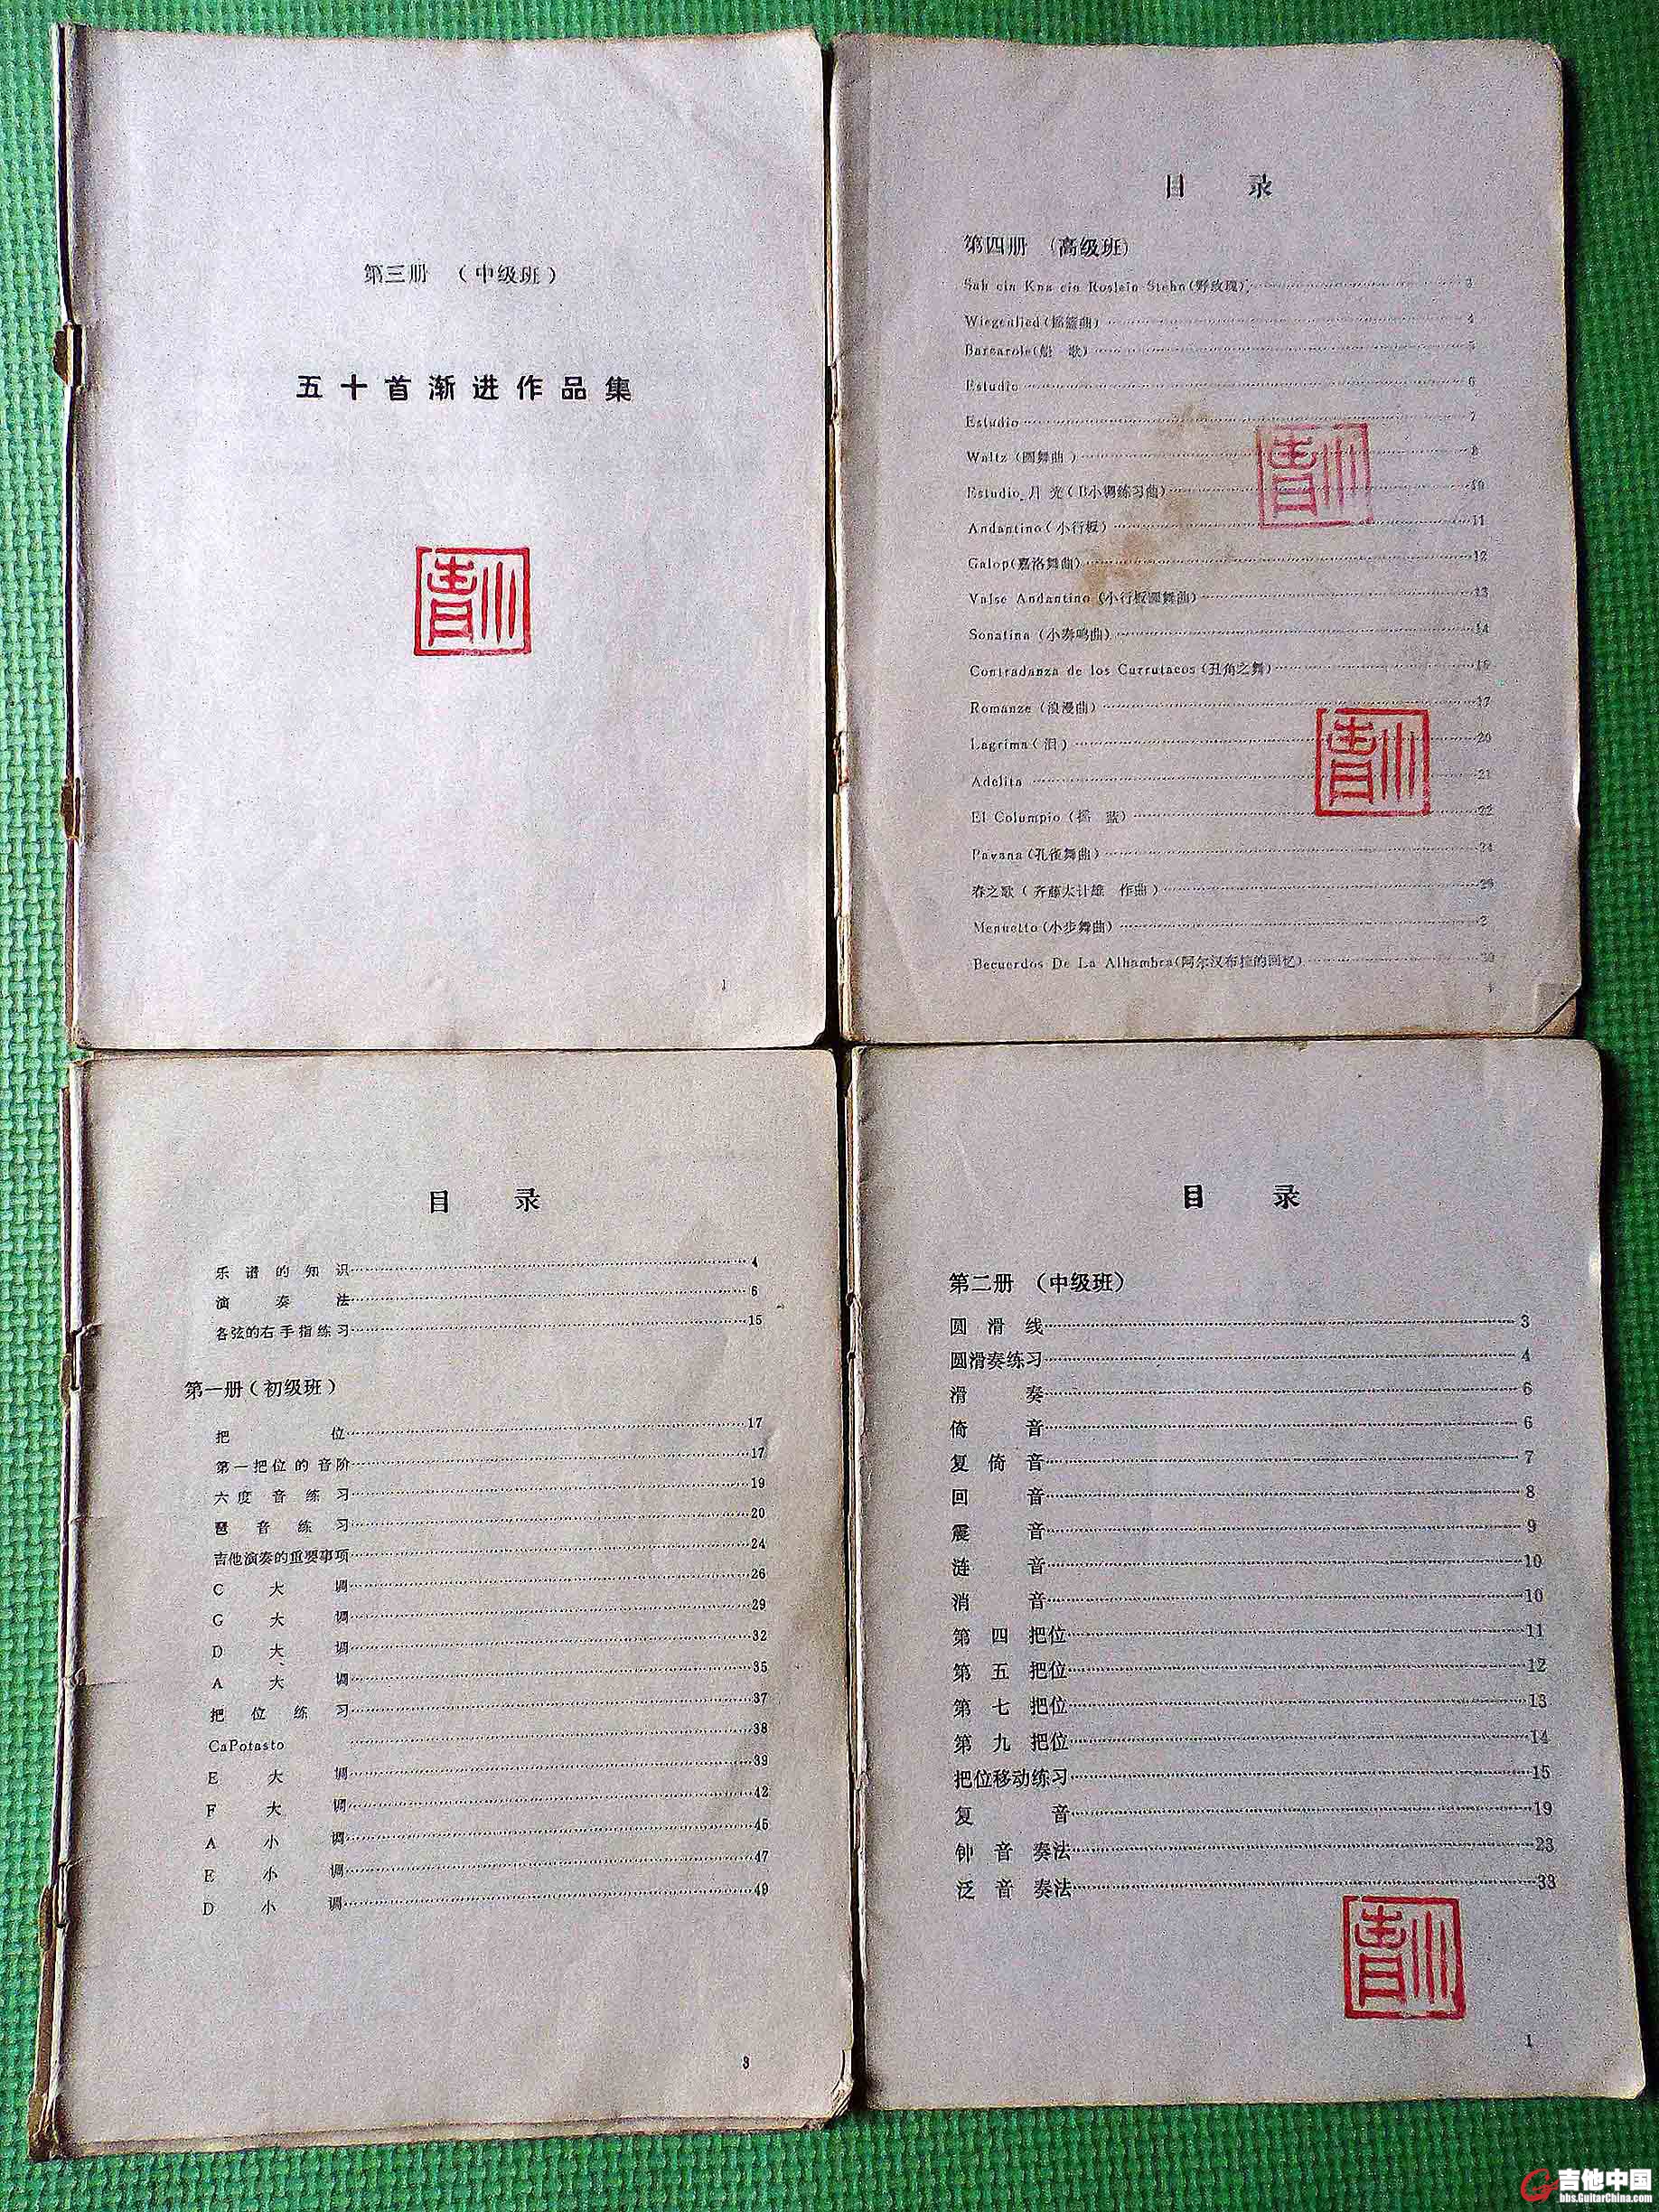 第三册 （中级班）
五十首渐进作品集
1
目 录
第四册 （高级班）
Sah ein Kna ein Roslein Stehn(野玫瑰) 3
Wiegenlied(摇篮曲) 4
Barcarole(船 歌) 5
Estudio 6
Estudio 7
Waltz (圆舞曲) 8
Estudio 月光(B小调练习曲) 10
Andantino(小行板) 11
Galop(嘉洛舞曲) 12
Valse Andantino(小行板圆舞曲) 13
Sonatina (小奏鸣曲) 14
Contradanza de los Currutacos(丑角之舞) 16
Romanze (浪漫曲) 17
Lagrima(泪) 20
Adelita 21
El Columpio (摇 蓝) 22
Pavana(孔雀舞曲) 24
春之歌(齐藤太计雄 作曲)
Menuetto(小步舞曲) 2
Becuerdos De La Alhambra(阿尔汉布拉的回忆) 30
目 录
乐谱的知识 4
演奏法 6
各弦的右手指练习 15
第一册(初级班)
把位 17
第一把位的音阶 17
六度音练习 19
琶音练习 20
吉他演奏的重要事项 24
C 大 调 26
G 大 调 29
D 大 调 32
A 大 调 35
把位练习 37
CaPotasto 38
E 大 调 39
F 大 调 42
A 小 调 45
E 小 调 47
D 小 调 49
3
目 录
第二册 （中级班）
圆滑线 3
圆滑奏练习 4
滑奏 6
倚音 6
复倚音 7
回音 8
震音 9
涟音 10
消音 10
第四把位 11
第五把位 12
第七把位 13
第九把位 14
把位移动练习 15
复音 19
钟音奏法 23
泛音奏法 33
1
吉他中国
bbs.GuitarChina.com